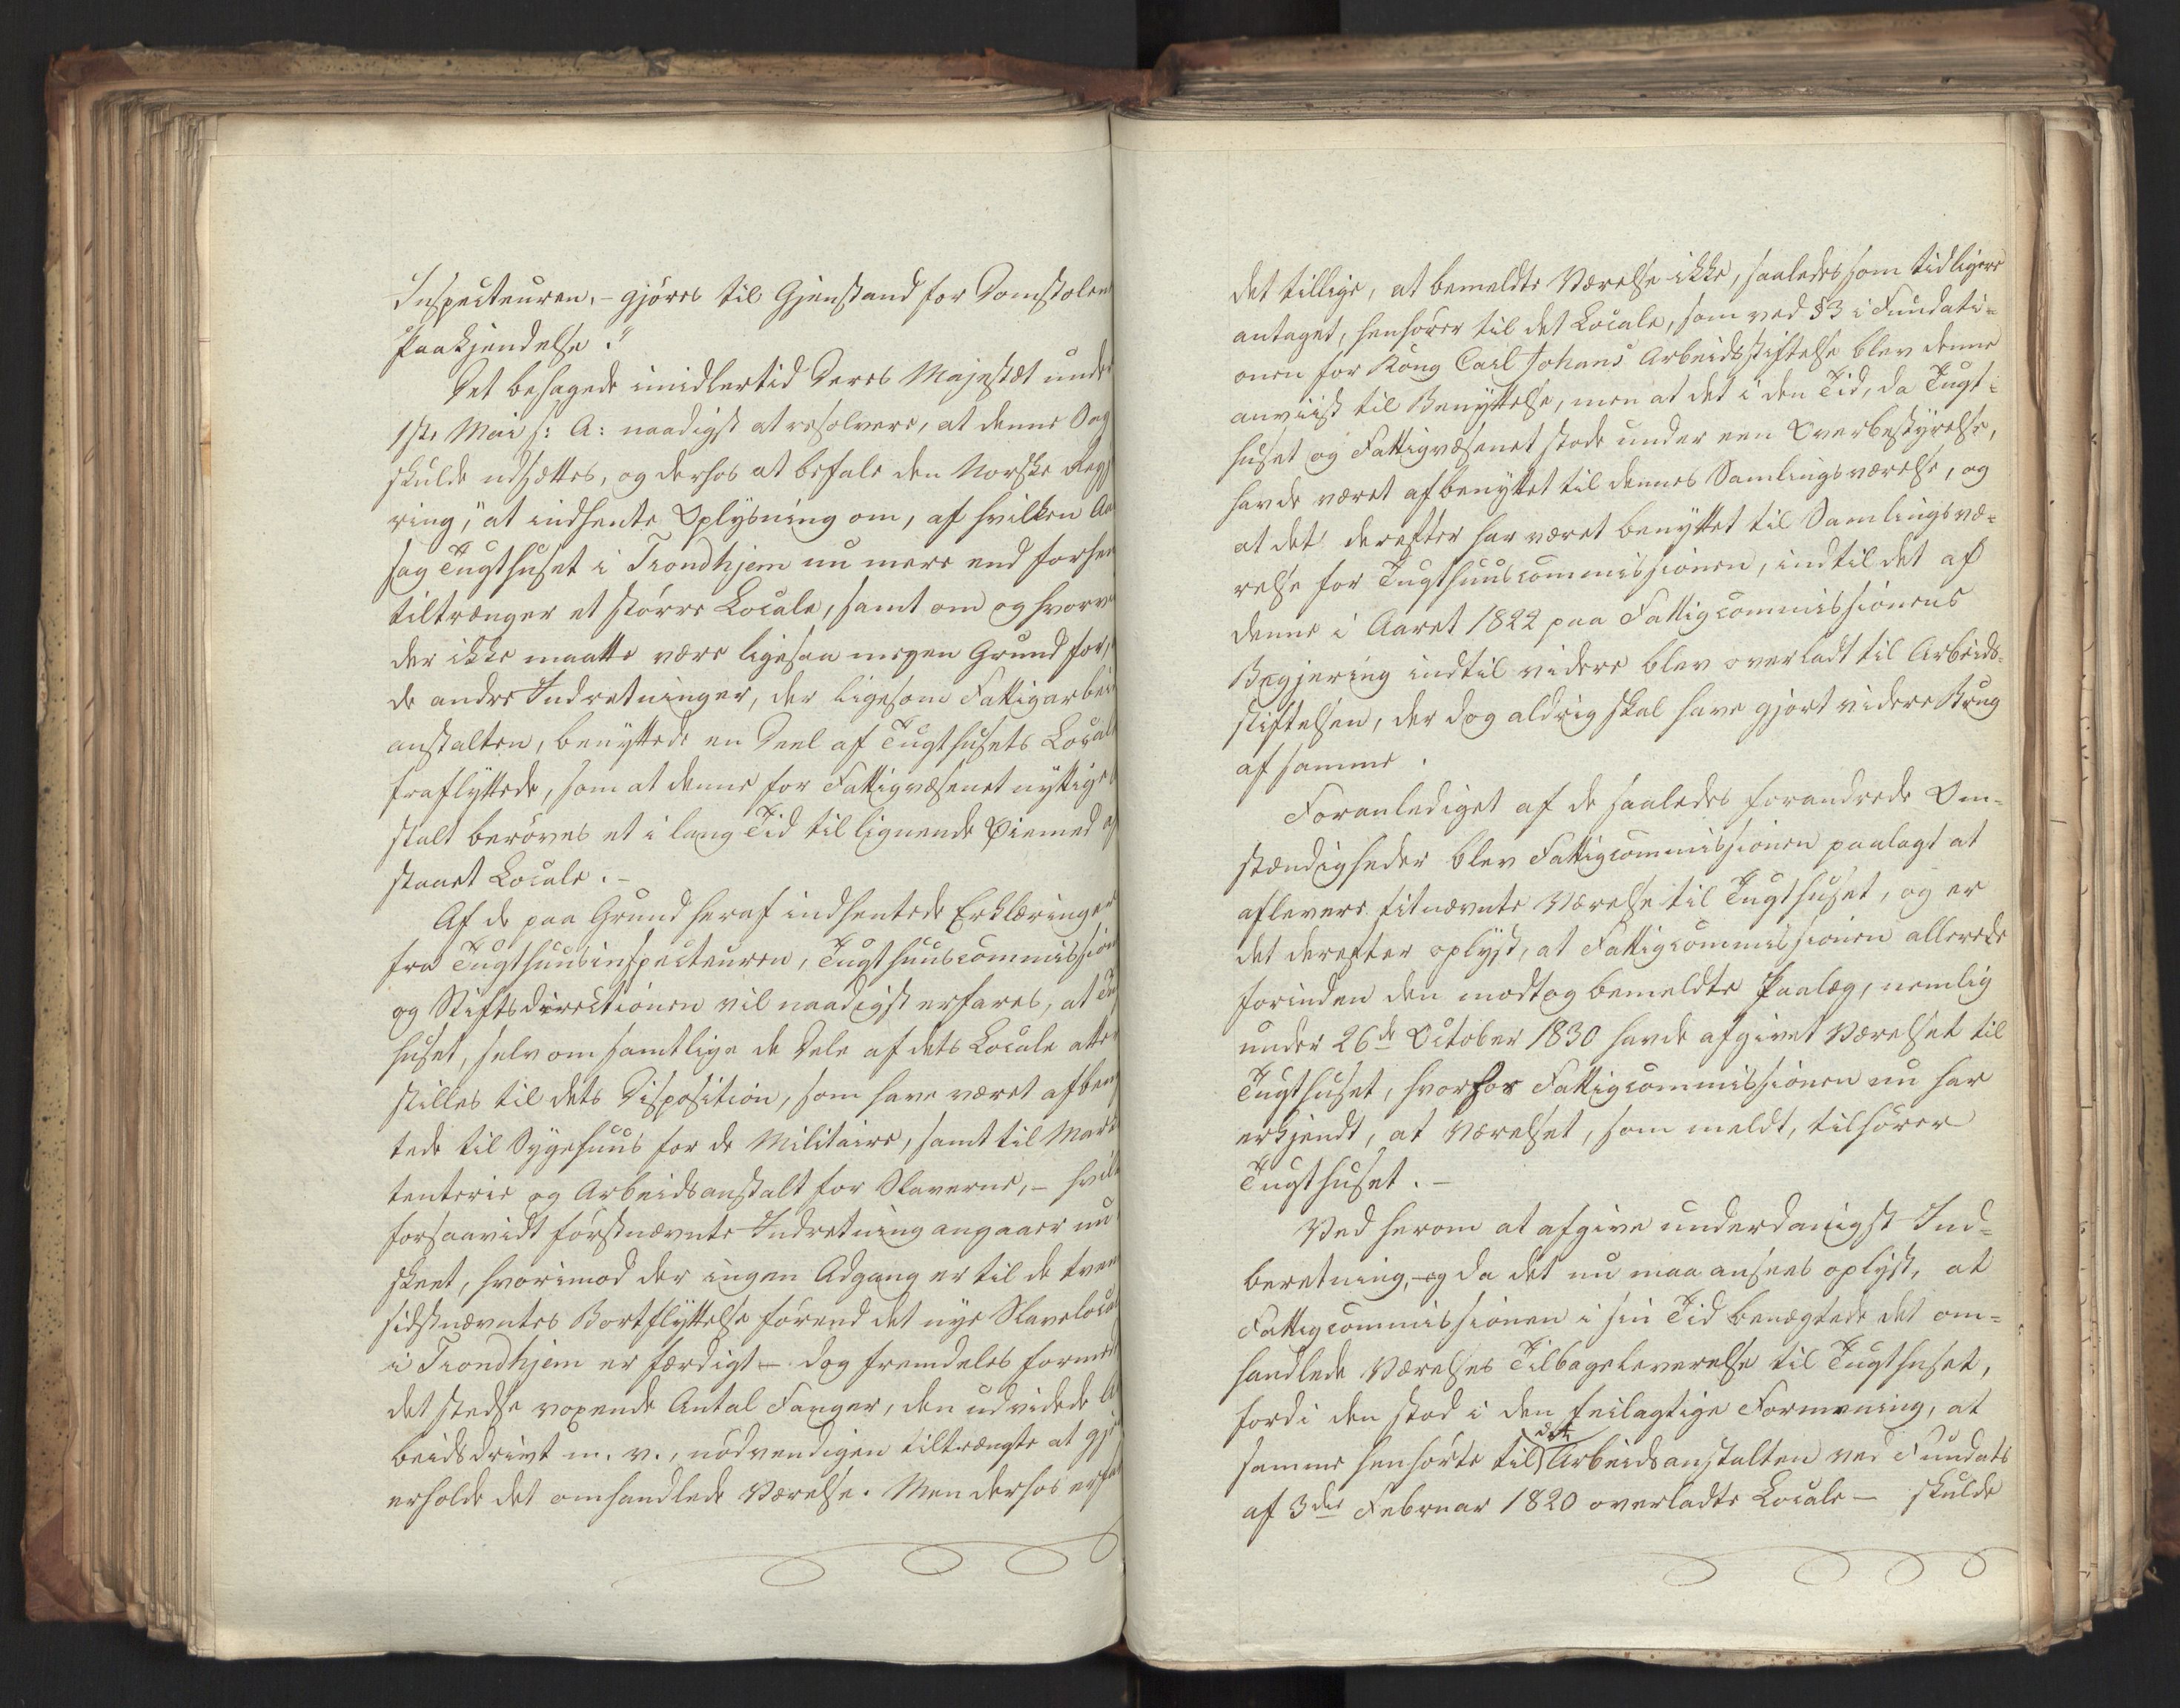 Inspecteuren, – gjöres til Gjenstand for Domstolens
Paakjendelse."
Det behagede imidlertid Deres Majestæt under
1ste Mai s: A: naadigst at resolvere, at denne Sag
skulde udsættes, og derhos at befale den Norske Regje
ring, "at indhente Oplysning om, af hvilken Aar
sag Tugthuset i Trondhjem nu mere end forhen
tiltrænger et större Locale, samt om og hvorvidt
der ikke maatte være ligesaa megen Grund for, at
de andre Indretninger, der ligesom Fattigarbeids
anstalten, benyttede en Deel af Tugthusets Locale
fraflyttede, som at denne for Fattigvæsenet nyttige An
stalt beröves et i lang Tid til lignende Øiemed af
staaet Locale. –
Af de paa Grund heraf indhentede Erklæringer
fra Tugthuusinspecteuren, Tugthuuscommissionen
og Stiftsdirectionen vil naadigst erfares, at Tugt
huset, selv om samtlige de Dele af dets Locale atter
stilles til dets Disposition, som have været afbenyt
tede til Sygehuus for de Militaire, samt til Marke
tenterie og Arbeidsanstalt for Slaverne, – hvilket
forsaavidt förstnævnte Indretning angaaer nu er
skeet, hvorimod der ingen Adgang er til de tvende
sidstnævntes Bortflyttelse förend det nye Slavelocale
i Trondhjem er færdigt – dog fremdeles formedelst
det stedse voxende Antal Fanger, den udvidede Ar
beidsdrivt m. v., nödvendigen tiltrængte at gjen
erholde det omhandlede Værelse. Men derhos erfares
det tillige, at bemeldte Værelse ikke, saaledes som tidligere
antaget, henhörer til det Locale, som ved §3 i Fundati=
onen for Kong Carl Johans Arbeidsstiftelse blev denne
anviist til Benyttelse, men at det i den Tid, da Tugt=
huset og Fattigvæsenet stode under een Overbestyrelse,
havde været afbenyttet til dennes Samlingsværelse, og
at det derefter har været benyttet til Samlingsvæ=
relse for Tugthuuscommissionen, indtil det af
denne i Aaret 1822 paa Fattigcommissionens
Begjering indtil videre blev overladt til Arbeids=
stiftelsen, der dog aldrig skal have gjort videre Brug
af samme.
Foranlediget af de saaledes forandrede Om=
stændigheder blev Fattigcommissionen paalagt at
aflevere titnævnte Værelse til Tugthuset, og er
det derefter oplyst, at Fattigcommissionen allerede
forinden den modtog bemeldte Paalæg, nemlig
under 26de October 1830 havde afgivet Værelset til
Tugthuset, hvorhos Fattigcommissionen nu har
erkjendt, at Værelset, som meldt, tilhörer
Tugthuset. –
Ved herom at afgive underdanigst Ind=
beretning, og da det nu maa ansees oplyst, at
Fattigcommissionen i sin Tid benegtede det om=
handlede Værelses Tilbageleverelse til Tugthuset,
fordi den stod i den feilagtige Formening, at
samme henhörte til det Arbeidsanstalten ved Fundats
af 3die Februar 1820 overladte Locale – skulde